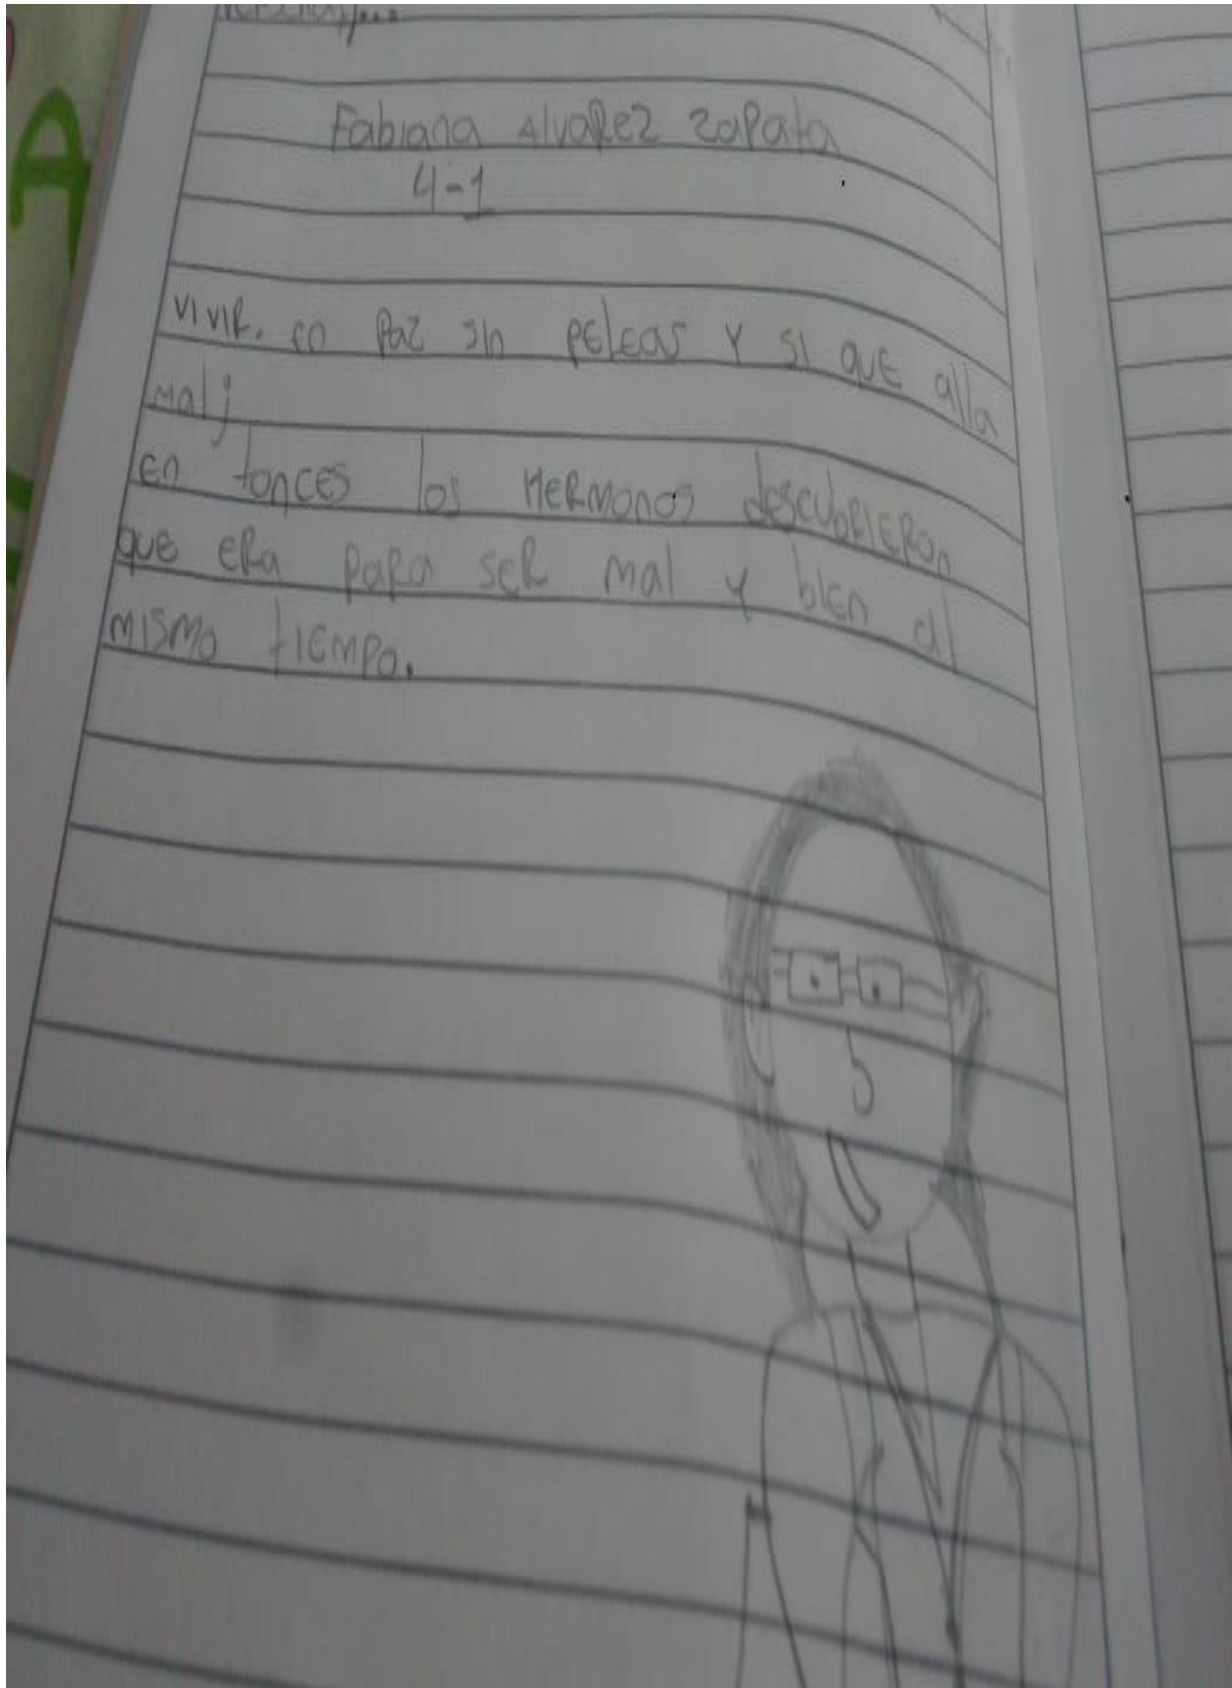 Fabiana Alvarez Zapata
4-1
vivir. en paz sin peleas y si que alla
mal j
en tonces los Hermonos descubrieron
que era para ser mal y bien al
mismo tiempo.